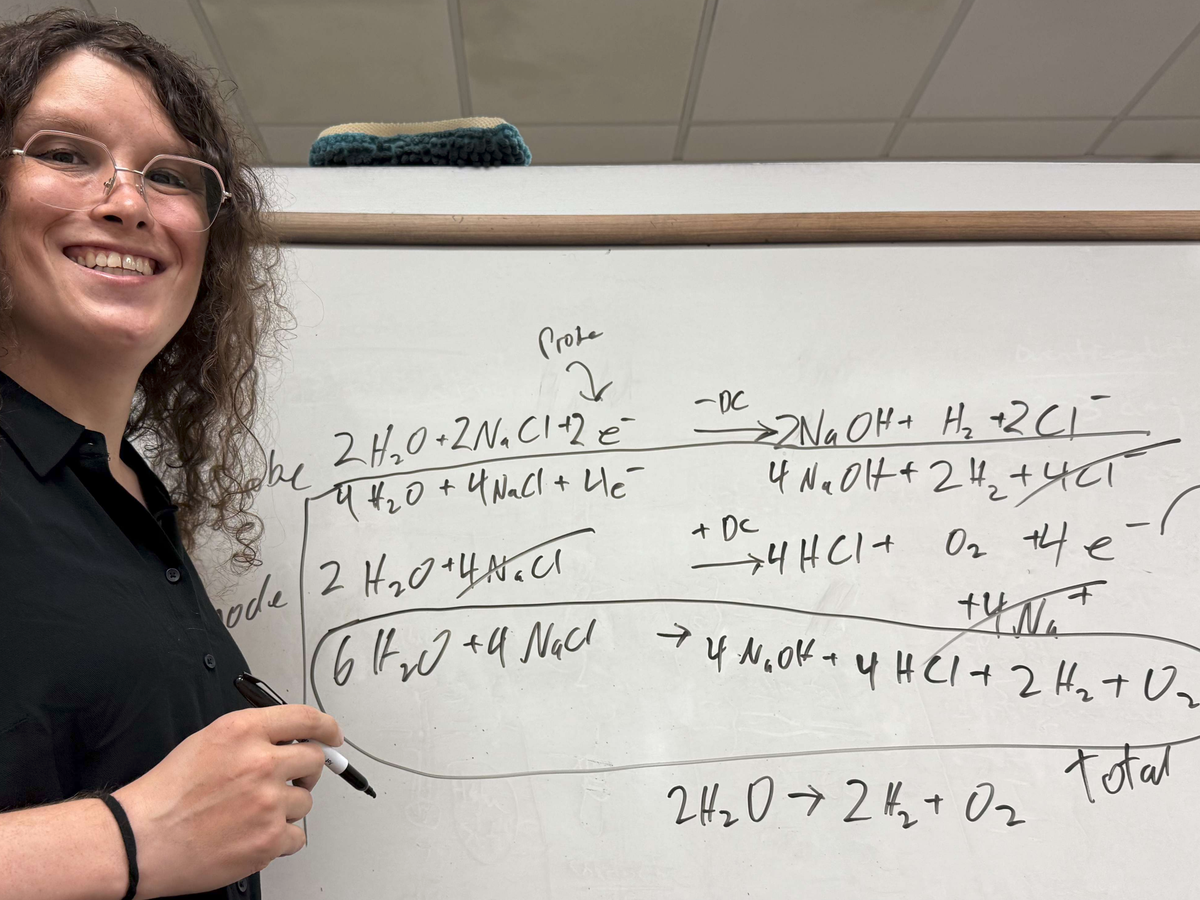 Probe
2H₂O + 2NaCl + 2e⁻ —DC→ 2NaOH + H₂ + 2Cl⁻
be
4H₂O + 4NaCl + 4e⁻ 4NaOH + 2H₂ + 4Cl⁻
2H₂O + 4NaCl +DC→ 4HCl + O₂ + 4e⁻
node
+4Na⁺
6H₂O + 4NaCl → 4NaOH + 4HCl + 2H₂ + O₂
total
2H₂O → 2H₂ + O₂